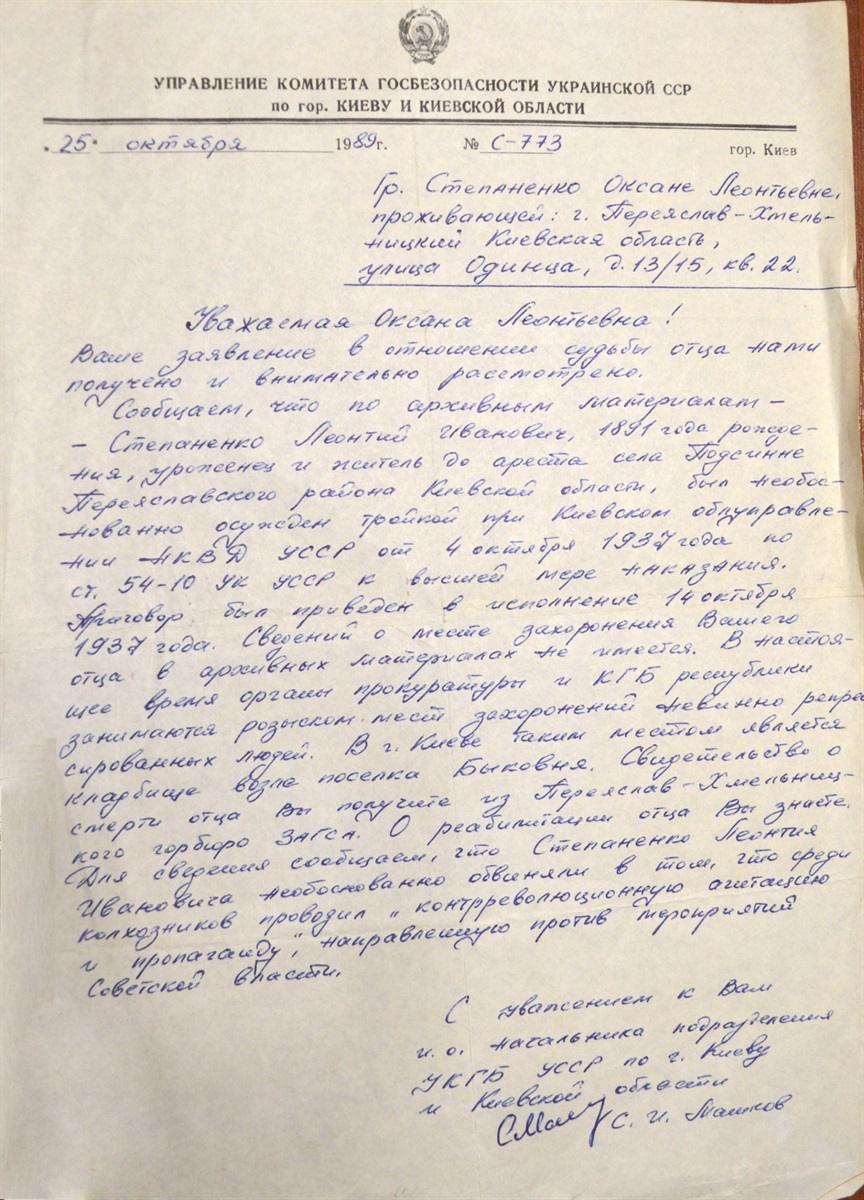 УПРАВЛЕНИЕ КОМИТЕТА ГОСБЕЗОПАСНОСТИ УКРАИНСКОЙ ССР
по гор. КИЕВУ И КИЕВСКОЙ ОБЛАСТИ
„25“ октября 1989 г. № С-773 гор. Киев
Гр. Степаненко Оксане Леонтьевне,
проживающей: г. Переяслав-Хмель-
ницкий Киевская область,
улица Одинца, д. 13/15, кв. 22.
Уважаемая Оксана Леонтьевна!
Ваше заявление в отношении судьбы отца нами
получено и внимательно рассмотрено.
Сообщаем, что по архивным материалам –
– Степаненко Леонтий Иванович, 1891 года рожде-
ния, уроженец и житель до ареста села Подсинне
Переяславского района Киевской области, был необос-
нованно осужден тройкой при Киевском облуправле-
нии НКВД УССР от 4 октября 1937 года по
ст. 54-10 УК УССР к высшей мере наказания.
Приговор был приведен в исполнение 14 октября
1937 года. Сведений о месте захоронения Вашего
отца в архивных материалах не имеется. В настоя-
щее время органы прокуратуры и КГБ республики
занимаются розыском мест захоронений невинно репрес
сированных людей. В г. Киеве таким местом является
кладбище возле поселка Быковня. Свидетельство о
смерти отца Вы получите из Переяслав-Хмельниц-
кого горбюро ЗАГСа. О реабилитации отца Вы знаете.
Для сведения сообщаем, что Степаненко Леонтия
Ивановича необоснованно обвиняли в том, что среди
колхозников проводил „контрреволюционную агитацию
и пропаганду", направленную против мероприятий
Советской власти.
С уважением к Вам
и. о. начальника подразделения
УКГБ УССР по г. Киеву
и Киевской области
С. И. Машков